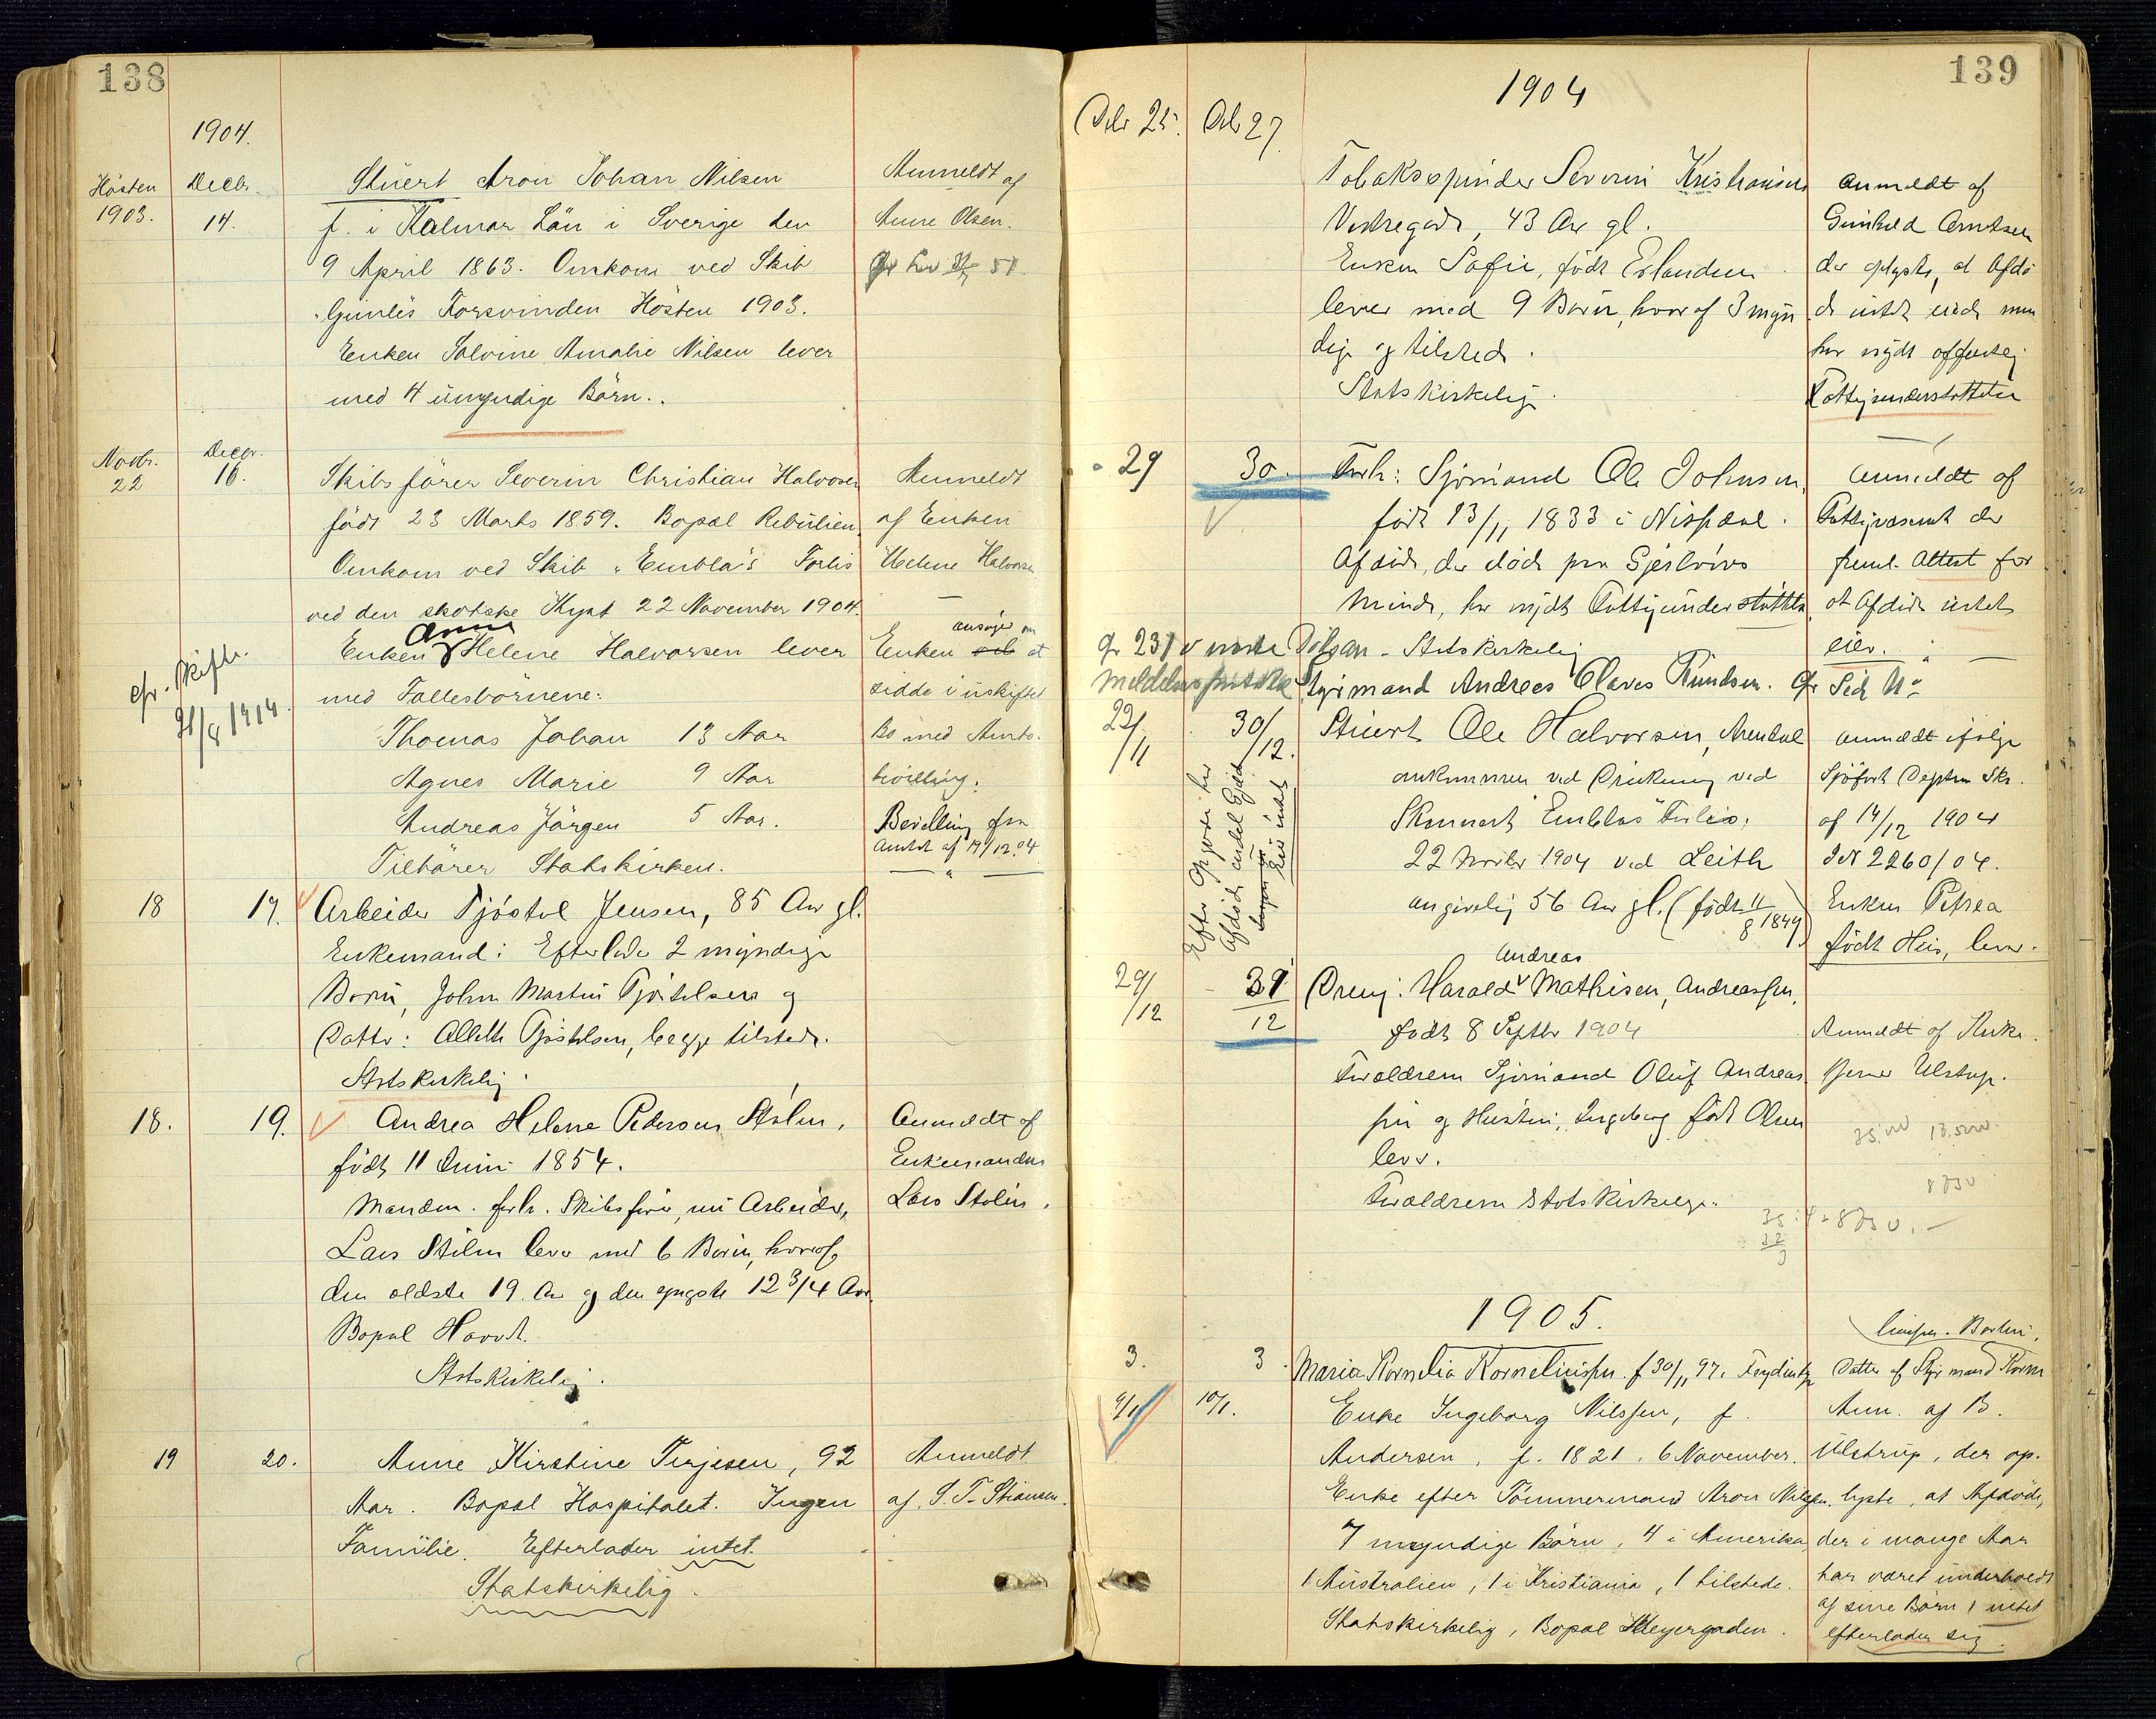 138
1904.
Hösten 1903.
Decbr. 14.
Stuert Aron Johan Nilsen
f. i Kalmar Län i Sverige den
9 April 1863. Omkom ved Skib
"Gimles Forsvinden Hösten 1903.
Enken Salvine Amalie Nilsen lever
med 4 umyndige Börn.
Anmeldt af
Anne Olsen.
Novbr. 22
Decbr. 16.
Skibsförer Severin Christian Halvorsen
født 23 Marts 1859. Bopæl Rebulien.
Omkom ved Skib "Embla's Forlis
ved den skotske Kyst 22 November 1904.
Enken Anna Helene Halvorsen lever
med Fællesbörnene:
Thomas Johan 13 Aar
Agnes Marie 9 Aar
Andreas Jörgen 5 Aar.
Tilhörer Statskirken.
Anmeldt
af Enken
Helene Halvorsen
Enken ansøger om at
sidde i uskiftet
Bo med Amts-
bevilling.
Bevilling fra
Amtet af 19/12.04
cfr. skiftr.
21/8 1914.
18
17.
Arbeider Tjöstol Jensen, 85 Aar gl.
Enkemand: Efterlader 2 myndige
Börn, John Martin Tjöstolsen og
Datter: Alleth Tjöstolsen, begge tilstede.
Statskirkelig.
18.
19.
Andrea Helene Pedersen Stölen,
født 11 Juni 1854.
Manden forh. Skibsfører, nu Arbeider,
Lars Stölen lever med 6 Börn, hvoraf
den ældste 19 Aar og den yngste 12 3/4 Aar.
Bopæl Havst.
Statskirkelig.
Anmeldt af
Enkemanden
Lars Stölen.
19
20.
Anne Kirstine Terjesen, 92
Aar. Bopæl Hospitalet. Ingen
Familie. Efterlader intet.
Statskirkelig.
Anmeldt
af S. T. Stiansen.
139
1904
Dcbr 25.
Dcbr 27.
Tobaksspinder Severin Kristiansen
Vestregade, 43 Aar gl.
Enken Sofie, født Erlandsen
lever med 9 Börn, hvoraf 3 myn
dige og tilstede.
Statskirkelig.
Anmeldt af
Gunhild Arntsen
der oplyste, at Afdö
de intet eiede men
har nydt offentlig
Fattigunderstøttelse
29
30.
Forh: Sjömand Ole Johnsen,
født 13/11 1833 i Nissedal.
Afdöde, der döde paa Gjeslövs
Minde, har nydt Fattigunderstøttelse
Statskirkelig
Anmeldt af
Fattigvæsenet der
freml. Attest for
at Afdöde intet
eier.
Styrmand Andreas Claves Knudsen. Cfr Sid No
22/11
30/12.
Stuert Ole Halvorsen, Arendal
omkommen ved Drukning ved
Skonnert "Emblas" Forlis,
22 Novbr 1904 ved Leith
angivelig 56 Aar gl. (født 11/8 1849)
Anmeldt ifølge
Sjöfarts Depten Skr.
af 14/12 1904
JN 2260/04.
Enken Petrea
født Hus, lever.
Efter Opgivende har
Afdøde
Eier intet
29/12
31/12
Dreng: Harald Andreas Mathisen, Andreassen,
født 8 Septbr 1904
Forældrene Sjömand Oluf Andreas
sen og Hustru, Ingeborg født Olsen
lever.
Forældrene Statskirkelige.
Anmeldt af Kirke
tjener Ulstrup.
1905.
3.
3.
Maria Kornelia Korneliussen f 30/11 97.
Datter af Styrmand Korne
liussen. Barbu.
9/1
10/1.
Enke Ingeborg Nilssen, f.
Andersen, f. 1821. 6 November.
Enke efter Tömmermand Aron Nilssen.
7 myndige Börn, 4 i Amerika,
1 Australien, 1 i Kristiania, 1 tilstede.
Statskirkelig, Bopæl Meyergaden.
Anm. af B.
Ulstrup, der op-
lyste, at Afdöde,
der i mange Aar
har været underholdt
af sine Börn, intet
efterlader sig.